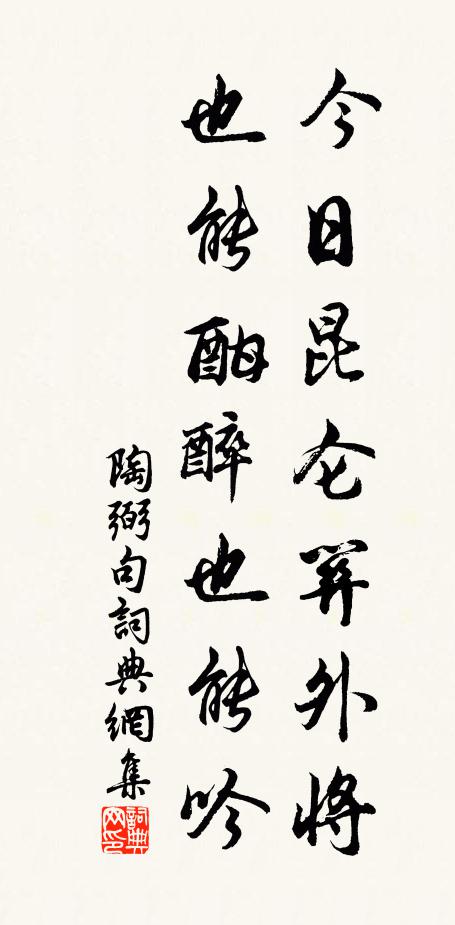 今日昆仑關外將
也能酣醉也能吟
陶弼句詞典網集
詞典网印